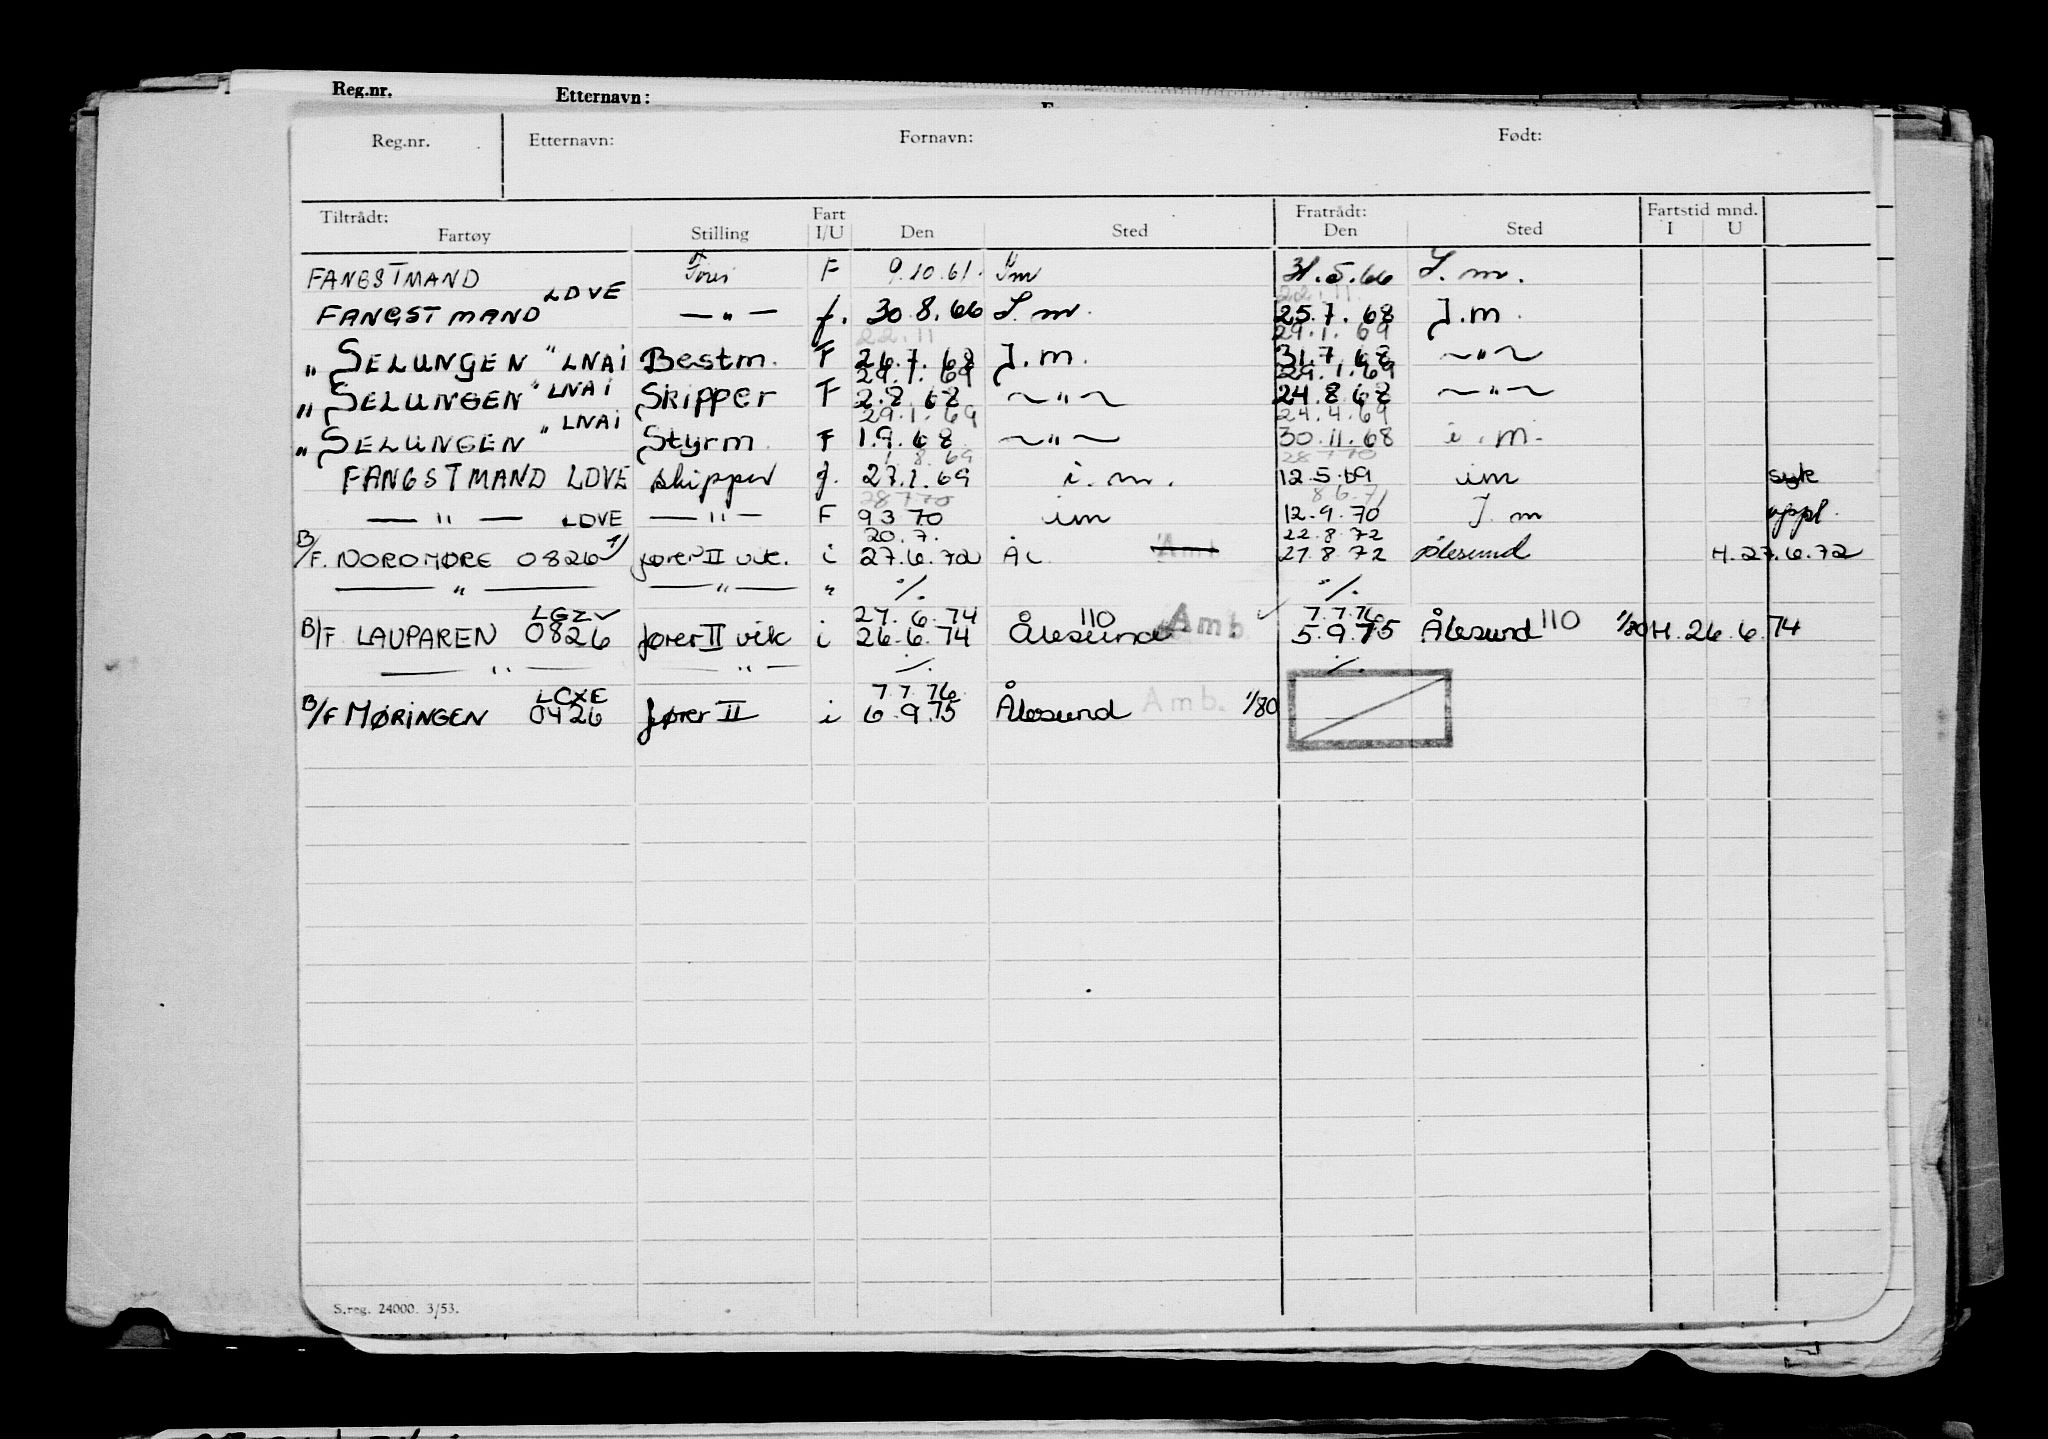 Reg.nr. Etternavn:
Reg.nr. Etternavn: Fornavn: Født:
Tiltrådt: Fart Fratrådt: Fartstid mnd.
Fartøy Stilling I/U Den Sted Den Sted I U
FANGSTMAND F 9.10.61. Im 31.5.66 I.m.
LDVE 22.11
FANGSTMAND — " — f. 30.8.66 I.m. 25.7.68 I.m.
22.11 29.1.69
" SELUNGEN " LNAI Bestm. F 26.7.68 I.m. 31.7.68 ~ " ~
29.1.69 29.1.69
" SELUNGEN " LNAI Skipper F 2.8.68 ~ " ~ 24.8.68 ~ " ~
29.1.69 24.4.69
" SELUNGEN " LNAI Styrm. F 1.9.68 ~ " ~ 30.11.68 i.m.
1.8.69 28770
FANGSTMAND LDVE skipper f. 27.1.69 i.m. 12.5.69 im syk
28770 8.6.71
— " — LDVE — " — F 9370 im 12.9.70 I.m oppl.
20.7. 22.8.72
B/F. NORDMØRE 0826 1) fører II vik. i 27.6.72 Ål Amb 27.8.72 Ålesund H.27.6.72
— " — — " — " ·/. ·/.
LGZV 27.6.74 110 Amb. 7.7.76 110
B/F LAUPAREN 0826 fører II vik i 26.6.74 Ålesund 5.9.75 Ålesund 1/80 H.26.6.74
— " — — " — ·/. ·/.
LCXE 7.7.76
B/F MØRINGEN 0426 fører II i 6.9.75 Ålesund Amb. 1/80
S.reg. 24000. 3/53.